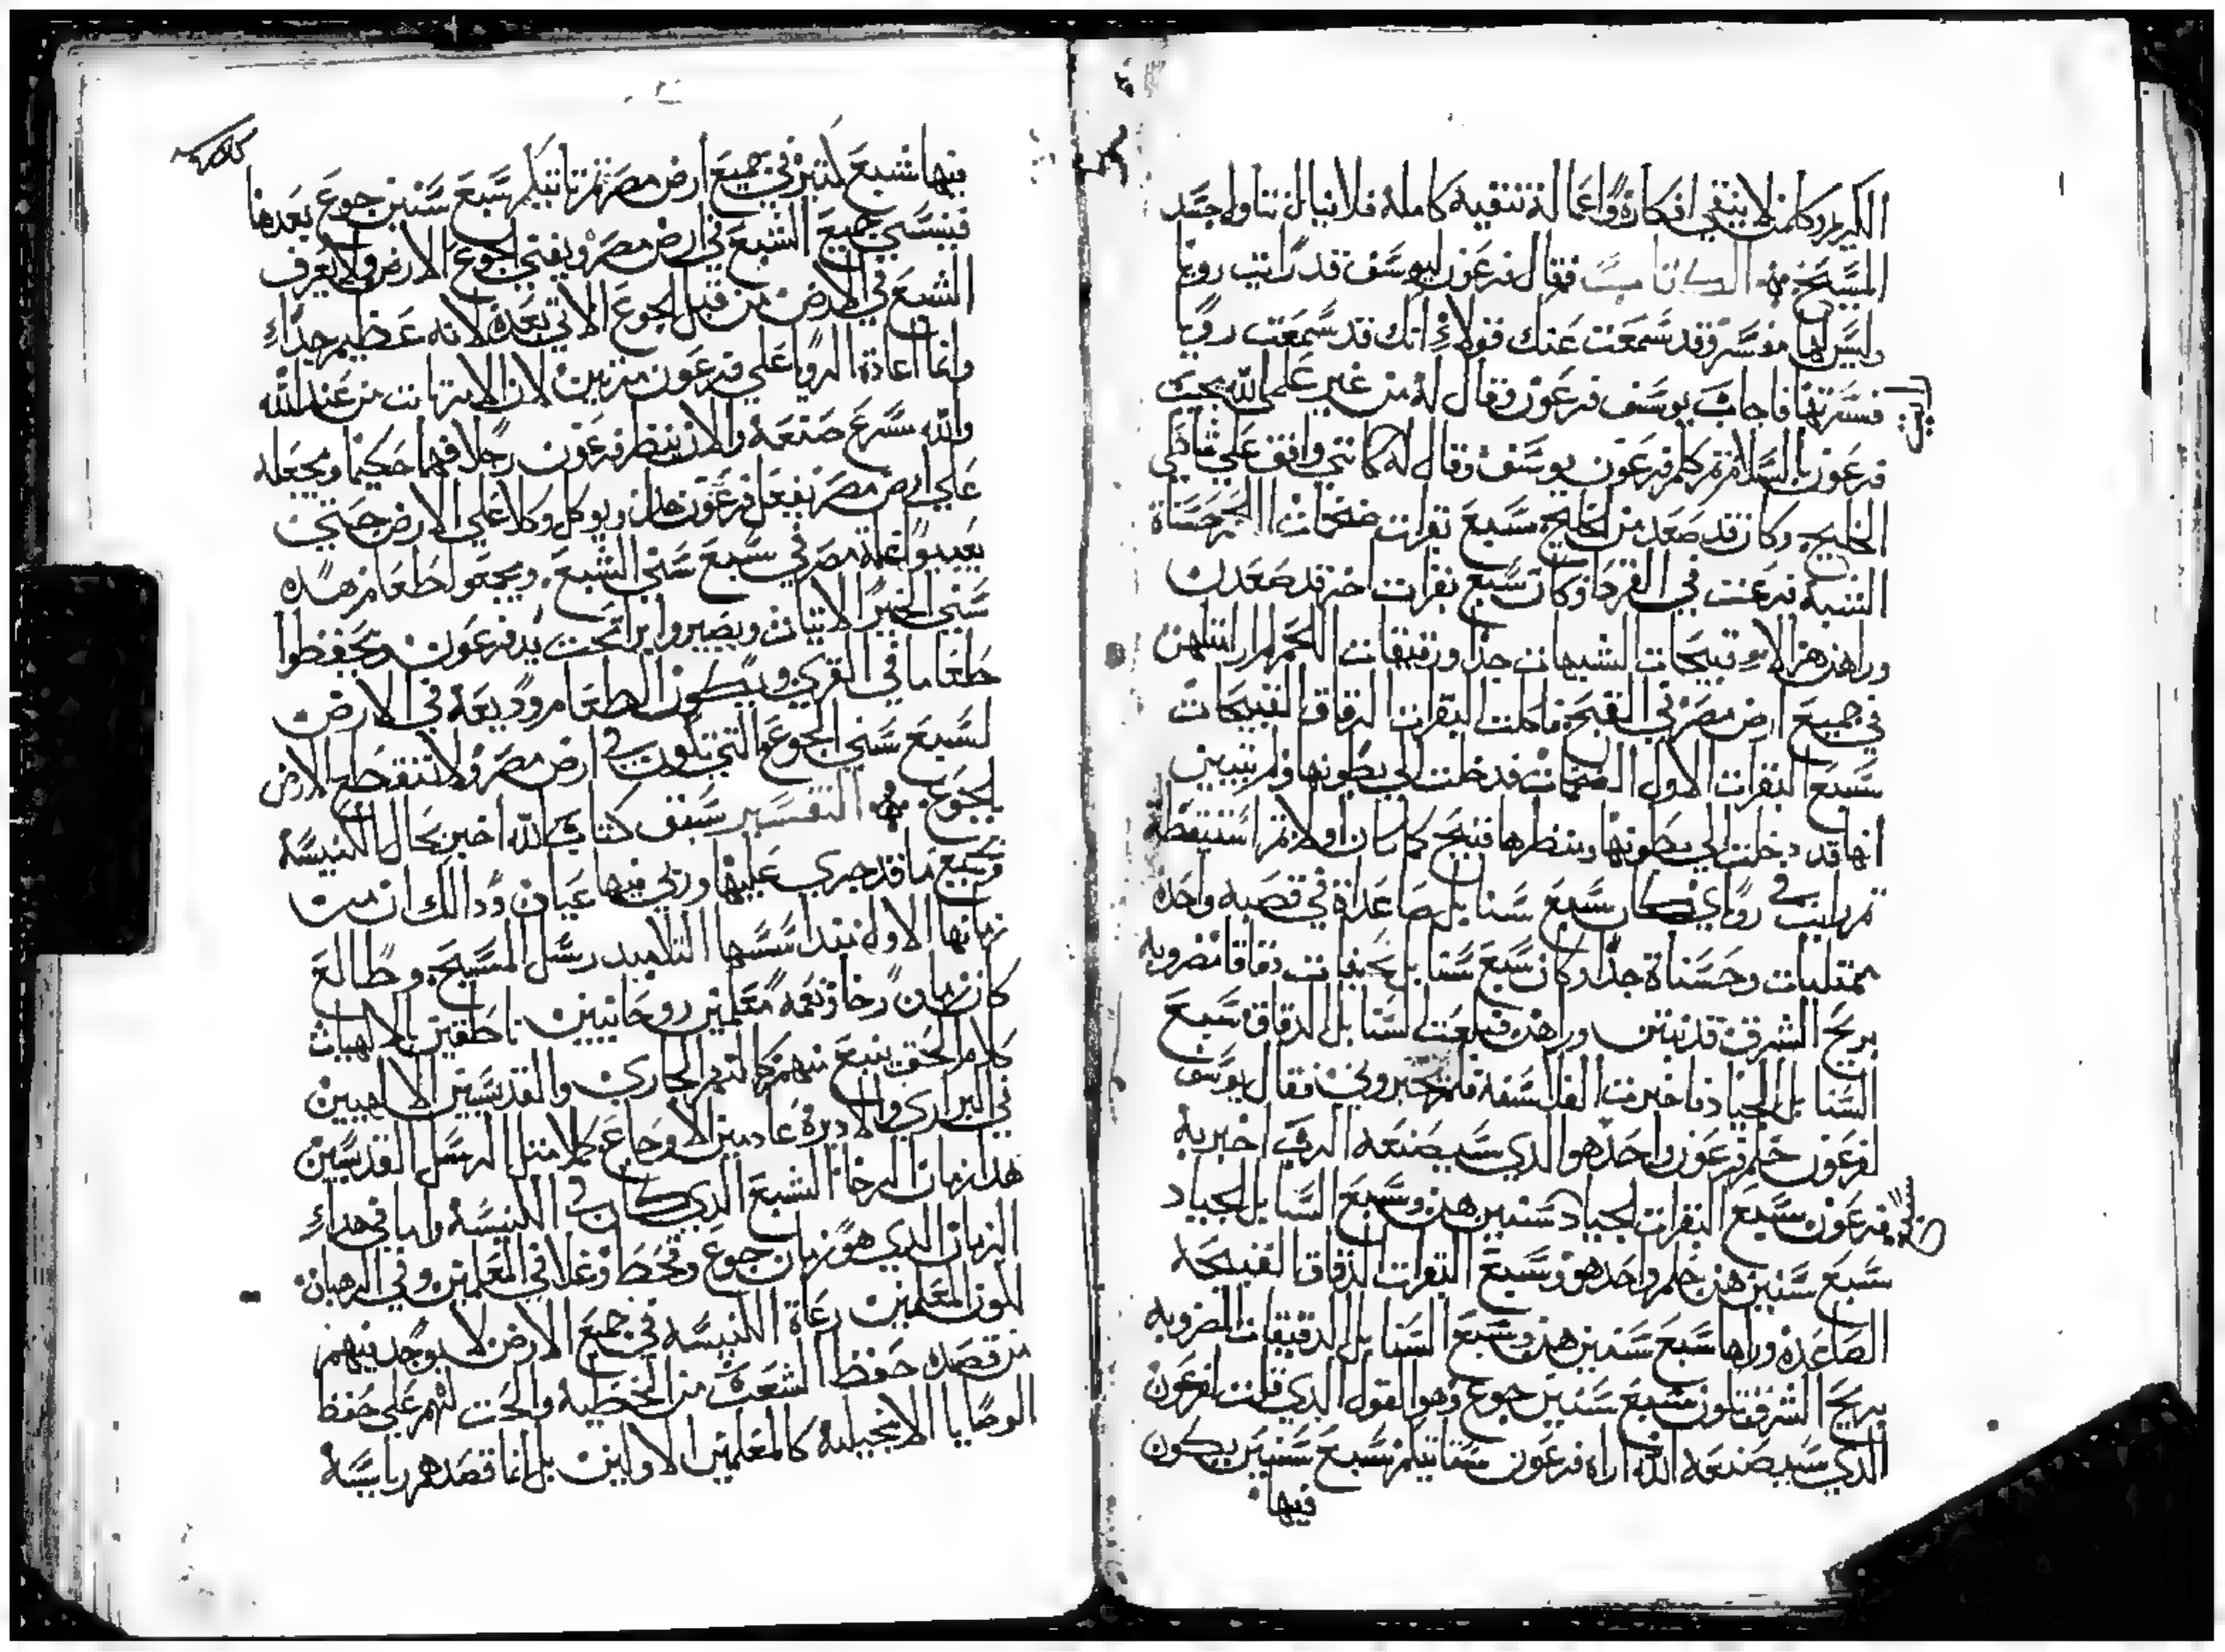 الكرير وكلمن لا ينقي افكاره واعماله تنقيه كامله فلا ينال تناول جسد
المسيح الكتاب فقال فرعون ليوسف قد رايت رويا
وليس لها مفسر وقد سمعت عنك قولاء انك قد سمعت رويا
فسرتها فاجاب يوسف فرعون وقال له من غير علم الله يجب
فرعون بالسلامة ثم كلم فرعون يوسف وقال له كانني واقف علي شاطي
الخليج وكان قد صعد من الخليج سبع بقرات ضخمات اللحم حسناة
النسبه فرعت في القرط وكان سبع بقرات اخر قد صعدن
وراهن هزالا قبيحات الشبهات جدا ورقيقات اللحم لم ار مثلهن
في جميع ارض مصر في القبح فاكلت البقرات الرقاق القبيحات
سبع البقرات الاول الضخمات فدخلت الي بطونها ولم تتبين
انها قد دخلت الي بطونها ومنظرها قبيح كما كان اولا ثم استيقظت
ثم رايت في روياي كان سبع سنابل صاعداة في قصبه واحده
ممتليات وحسناة جدا وكان سبع سنابل نحيفات دقاقا مضروبه
بريح الشرق قد نبتن وراهن فبلعت السنابل الدقاق سبع
السنابل الجياد فاخبرت الفلاسفة فلم يخبروني فقال يوسف
لفرعون حلم فرعون واحد هو الذي سيصنعه الرب اخبر به
فرعون سبع البقرات الجياد سنين هن وسبع السنابل الجياد
سبع سنين هن حلم واحد هو وسبع البقرات الدقاق القبيحه
الصاعده وراها سبع سنين هن وسبع السنابل الدقيقات المضروبه
بريح الشرق تكون سبع سنين جوع وهو القول الذي قلت لفرعون
الذي سيصنعه الله اراه فرعون ستاتيكم سبع سنين يكون
فيها
فيها شبع كثير في جميع ارض مصر ثم تاتيكم سبع سنين جوع بعدها
فينسي جميع الشبع في ارض مصر ويفني الجوع الارض ولا يعرف
الشبع في الارض من قبل الجوع الاتي بعده لانه عظيم جداء
وانما اعادة الرويا علي فرعون مرتين لان الامر ثابت من عند الله
والله يسرع صنعه والان ينظر فرعون رجلا فهما حكيما ويجعله
علي ارض مصر يفعل فرعون هذا ويوكل وكلا علي الارض حتي
يعيبوا غلة مصر في سبع سني الشبع ويجمعوا طعام هذه
سني الخير الاتيات ويصيروا برا تحت يد فرعون ويحفظوا
طعاما في القري ويكون الطعام وديعه في الارض
لسبع سني الجوع التي تكون في ارض مصر ولا تنقطع الارض
بالجوع التفسير سبق كتاب الله اخبر بحال الكنيسة
وجميع ما قد جري عليها وري فيها عيان وذالك ان من
زمانها الاول منذ اسسها التلاميد رسل المسيح وطالع
كان زمان رخا ونعمه معلمين روحانيين ناطقين بالالهيات
كلام الحق ينبع منهم كالنهر الجاري والقديسين الالهيين
في البراري والاديرة عادمين الاوجاع كامثل الرسل القديسين
هذا زمان الرخا الشبع الذي كان في الكنيسة واما في هذاء
الزمان الذي هو زمان جوع وقحط وغلا في المعلمين وفي الرهبان
لكون المعلمين رعاة الكنيسه في جميع الارض لا يوجد فيهم
من قصده حفظ الشعب من الخطيه والحث لهم علي حفظ
الوصايا الانجيليه كالمعلمين الاولين بل انما قصدهم رياسه